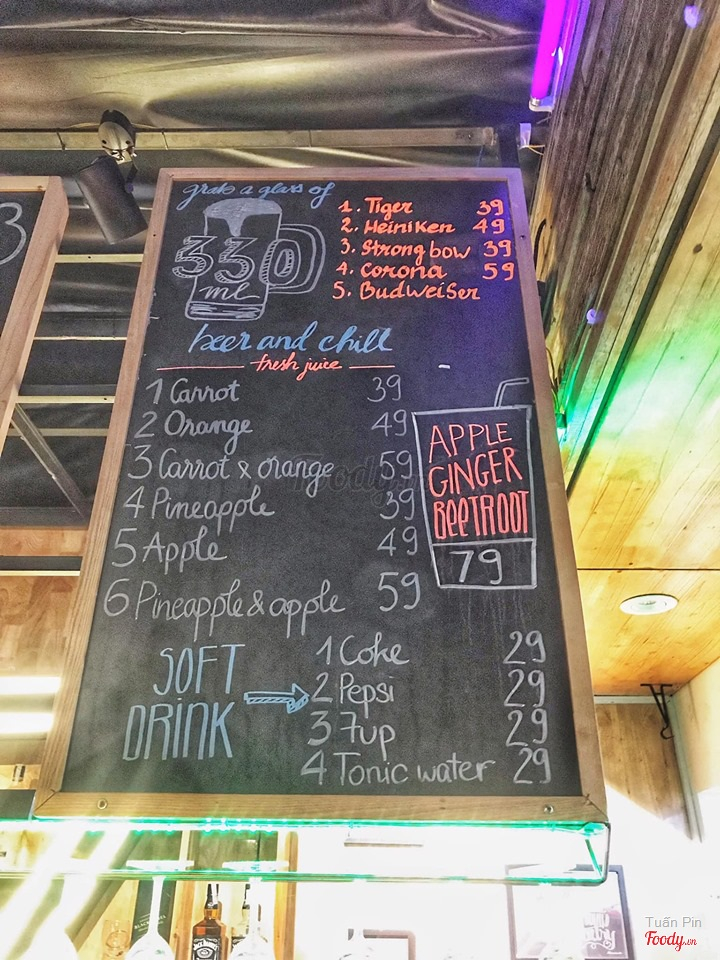 3
grab a glass of
330
ml
1. Tiger 39
2. Heiniken 49
3. Strongbow 39
4. Corona 59
5. BudWeiSer
beer and chill
fresh juice
1 Carrot 39
2 Orange 49
3 Carrot x orange 59
4 Pineapple 39
5 Apple 49
6 Pineapple & apple 59
APPLE
GINGER
BEETROOT
79
SOFT
DRINK
1 Coke 29
2 Pepsi 29
3 7up 29
4 Tonic water 29
Foody
Tuấn Pin
Foody.vn